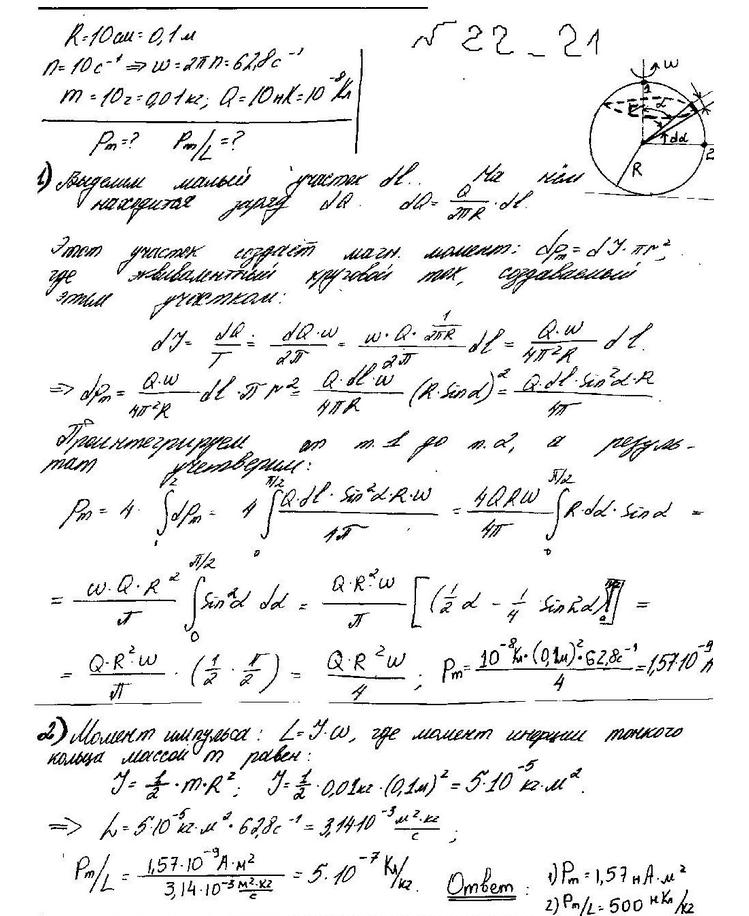 R=10см=0,1м
n=10с⁻¹ ⇒ w=2πn=62,8с⁻¹
m=10г=0,01кг; Q=10нК=10⁻⁸Кл
Pm=? Pm/L=?
N 22-21
w
1
α
dα
2
R
1) Выделим малый участок dl.. На нём
находится заряд dQ. dQ= Q/2πR · dl.
Этот участок создаёт магн. момент: dpm=dJ·πr²,
где эквивалентный круговой ток, создаваемый
этим участком:
dJ= dQ/T = dQ·w/2π = w·Q·(1/2πR)/2π dl = Q·w/4π²R dl.
⇒ dpm= Q·w/4π²R dl·πr² = Q·dl·w/4πR (R·sinα)² = Q·dl·sin²α·R/4π
Проинтегрируем от т.1 до т.2, а резуль-
тат учетверим:
Pm = 4·∫₁² dpm = 4 ∫₀^π/2 Q·dl·sin²α·R·w/4π = 4QRw/4π ∫₀^π/2 R·dα·sinα =
= w·Q·R²/π ∫₀^π/2 sin²α dα = Q·R²w/π [(1/2 α - 1/4 sin2α)]₀^π/2 =
= Q·R²w/π · (1/2 · π/2) = Q·R²w/4 ; Pm= 10⁻⁸Кл·(0,1м)²·62,8с⁻¹/4 =1,57·10⁻⁹А
2) Момент импульса: L=J·w, где момент инерции тонкого
кольца массой m равен:
J= 1/2 ·m·R²; J= 1/2 ·0,01кг·(0,1м)²=5·10⁻⁵ кг·м².
⇒ L=5·10⁻⁵кг·м²·62,8с⁻¹=3,14·10⁻³ м²·кг/с ;
Pm/L = 1,57·10⁻⁹А·м² / 3,14·10⁻³ м²·кг/с = 5·10⁻⁷ Кл/кг.
Ответ: 1) Pm=1,57нА·м²
2) Pm/L=500 нКл/кг